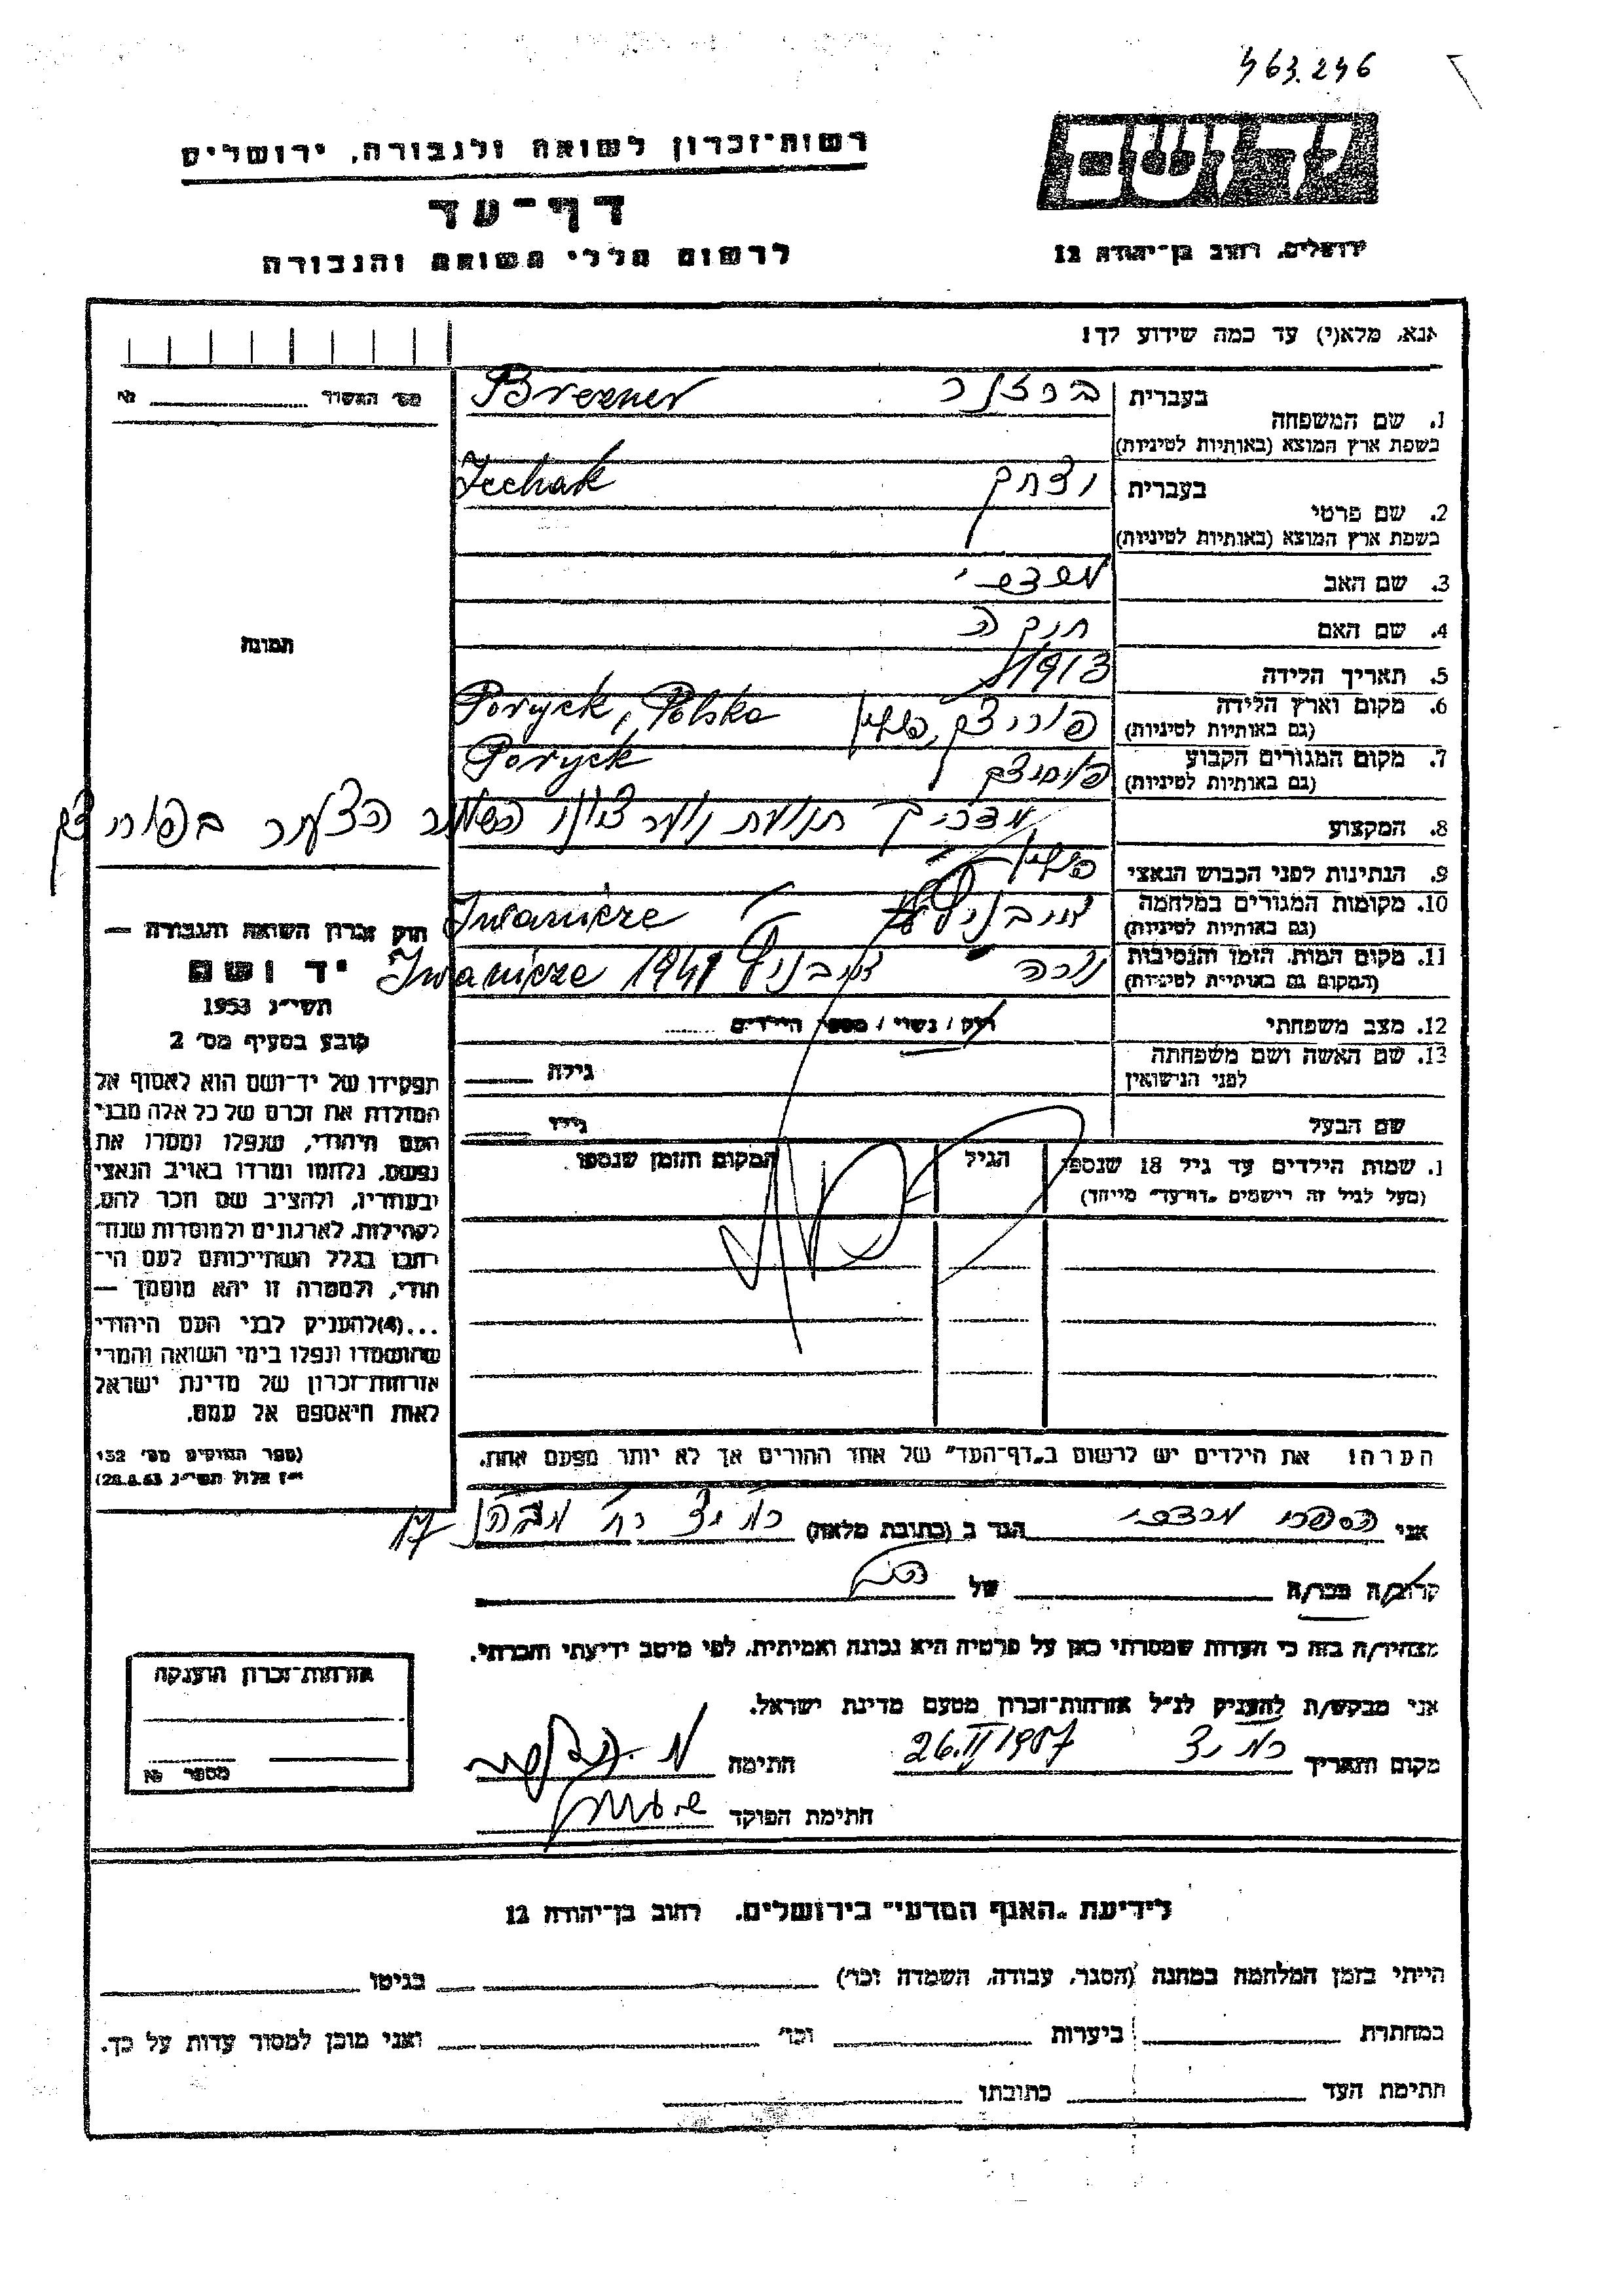 463.246
רשות-זכרון לשואה ולגבורה, ירושלים
דף-עד
לרשום חללי השואה והגבורה
יד ושם
ירושלים, רחוב בן-יהודה 12
אנא, מלא(י) עד כמה שידוע לך!
מס' התשדיר № ______
1. שם המשפחה
בעברית ברזנר Brezner
בשפת ארץ המוצא (באותיות לטיניות)
2. שם פרטי
בעברית יצחק Icchak
בשפת ארץ המוצא (באותיות לטיניות)
3. שם האב
4. שם האם
5. תאריך הלידה 1913
6. מקום וארץ הלידה פוריצק, פולין Poryck, Polska
(גם באותיות לטיניות)
7. מקום המגורים הקבוע פוריצק Poryck
(גם באותיות לטיניות)
8. המקצוע מדריך תנועת נוער ציוני השומר הצעיר בפוריצק
9. הנתינות לפני הכבוש הנאצי פולין
10. מקומות המגורים במלחמה Iwanicze
(גם באותיות לטיניות)
11. מקום המות, הזמן והנסיבות נורה 1941 Iwanicze
(המקום גם באותיות לטיניות)
12. מצב משפחתי רווק / נשוי / מספר הילדים ......
13. שם האשה ושם משפחתה גילה ______
לפני הנישואין
שם הבעל גילו ______
תמונה
חוק זכרון השואה והגבורה —
יד ושם
תשי"ג 1953
קובע בסעיף מס' 2
תפקידו של יד-ושם הוא לאסוף אל
המולדת את זכרם של כל אלה מבני
העם היהודי, שנפלו ומסרו את
נפשם, נלחמו ומרדו באויב הנאצי
ובעוזריו, ולהציב שם וזכר להם,
לקהילות, לארגונים ולמוסדות שנח-
רבו בגלל השתייכותם לעם הי-
הודי, ולמטרה זו יהא מוסמך —
...(4)להעניק לבני העם היהודי
שהושמדו ונפלו בימי השואה והמרי
אזרחות-זכרון של מדינת ישראל
לאות היאספם אל עמם.
(ספר החוקים מס' 132
י"ז אלול תשי"ג 28.8.53)
1. שמות הילדים עד גיל 18 שנספו הגיל המקום והזמן שנספו
(מעל לגיל זה רישמים "דף-עד" מייחד)
הערה! את הילדים יש לרשום ב"דף-העד" של אחד ההורים אך לא יותר מפעם אחת.
אני הגר ב (כתובת מלאה)
קרוב/ה מכר/ה ______ של
מצהיר/ה בזה כי העדות שמסרתי כאן על פרטיה היא נכונה ואמיתית, לפי מיטב ידיעתי והכרתי.
אני מבקש/ת להעניק לנ"ל אזרחות-זכרון מטעם מדינת ישראל.
מקום ותאריך 26.II 1957 חתימה
חתימת הפוקד
אזרחות-זכרון הוענקה
מספר №
לידיעת "האגף המדעי" בירושלים, רחוב בן-יהודה 12
הייתי בזמן המלחמה במחנה (הסגר, עבודה, השמדה וכר') ______ בגיטו ______
במחתרת ______ ביערות ______ וכר' ______ ואני מוכן למסור עדות על כך.
חתימת העד ______ כתובתו ______